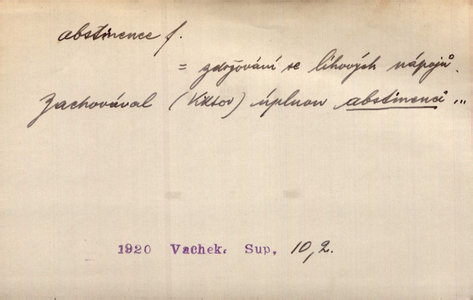 abstinence f.
= zdržování se lihových nápojů.
Zachovával (Viktor) úplnou abstinenci ...
1920 Vachek. Sup, 10,2.